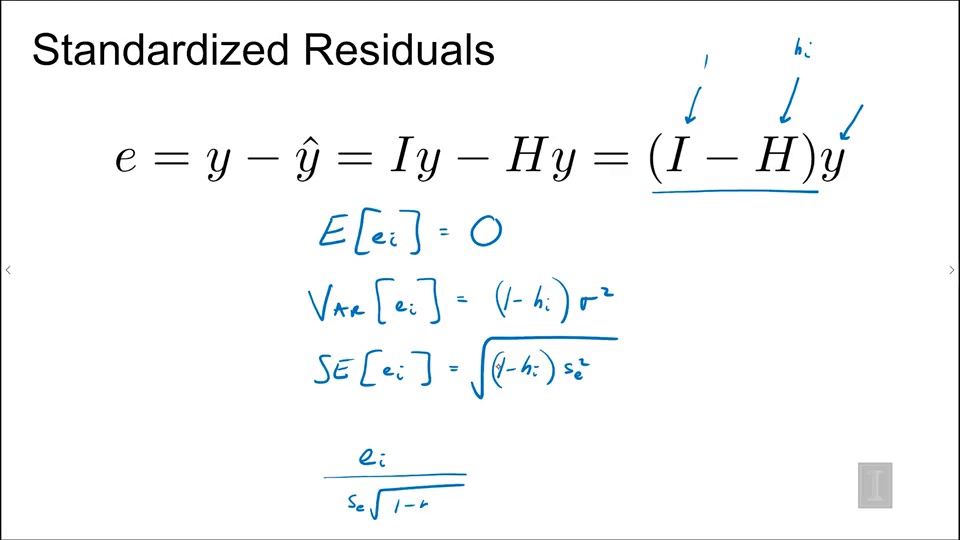 Standardized Residuals
1 hi
e = y − ŷ = Iy − Hy = (I − H)y
E[ei] = 0
VAR[ei] = (1-hi)σ²
SE[ei] = √(1-hi)se²
ei
se√1-